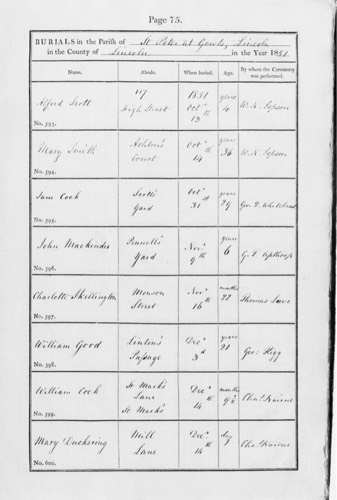 Page 75.
BURIALS in the Parish of St Peter at Gowts, Lincoln
in the County of Lincoln in the Year 1851
Name. Abode. When buried. Age. By whom the Ceremony was performed.
Alfred Scott 117 High Street 1851 Octr 13 years 4 W. N. Jepson
No. 593.
Mary Smith Ashton's Court Octr 14th 36 W. N. Jepson
No. 594.
Cook Scott's Yard Octr 31st years 29 Geo. D. Whitehead
No. 595.
John Mackinder Pennell's Yard Novr 9th years 6 G. T.
No. 596.
Charlotte Skellington Monson Street Novr 16th months 22 Thomas
No. 597.
William Good Linton's Passage Decr 3d years 21 Geo. Rigg
No. 598.
William Cook St Mark's Lane St Mark's Decr 14th months Chas.
No. 599.
Mary Duckering Mill Lane Decr 14th day Chas.
No. 600.